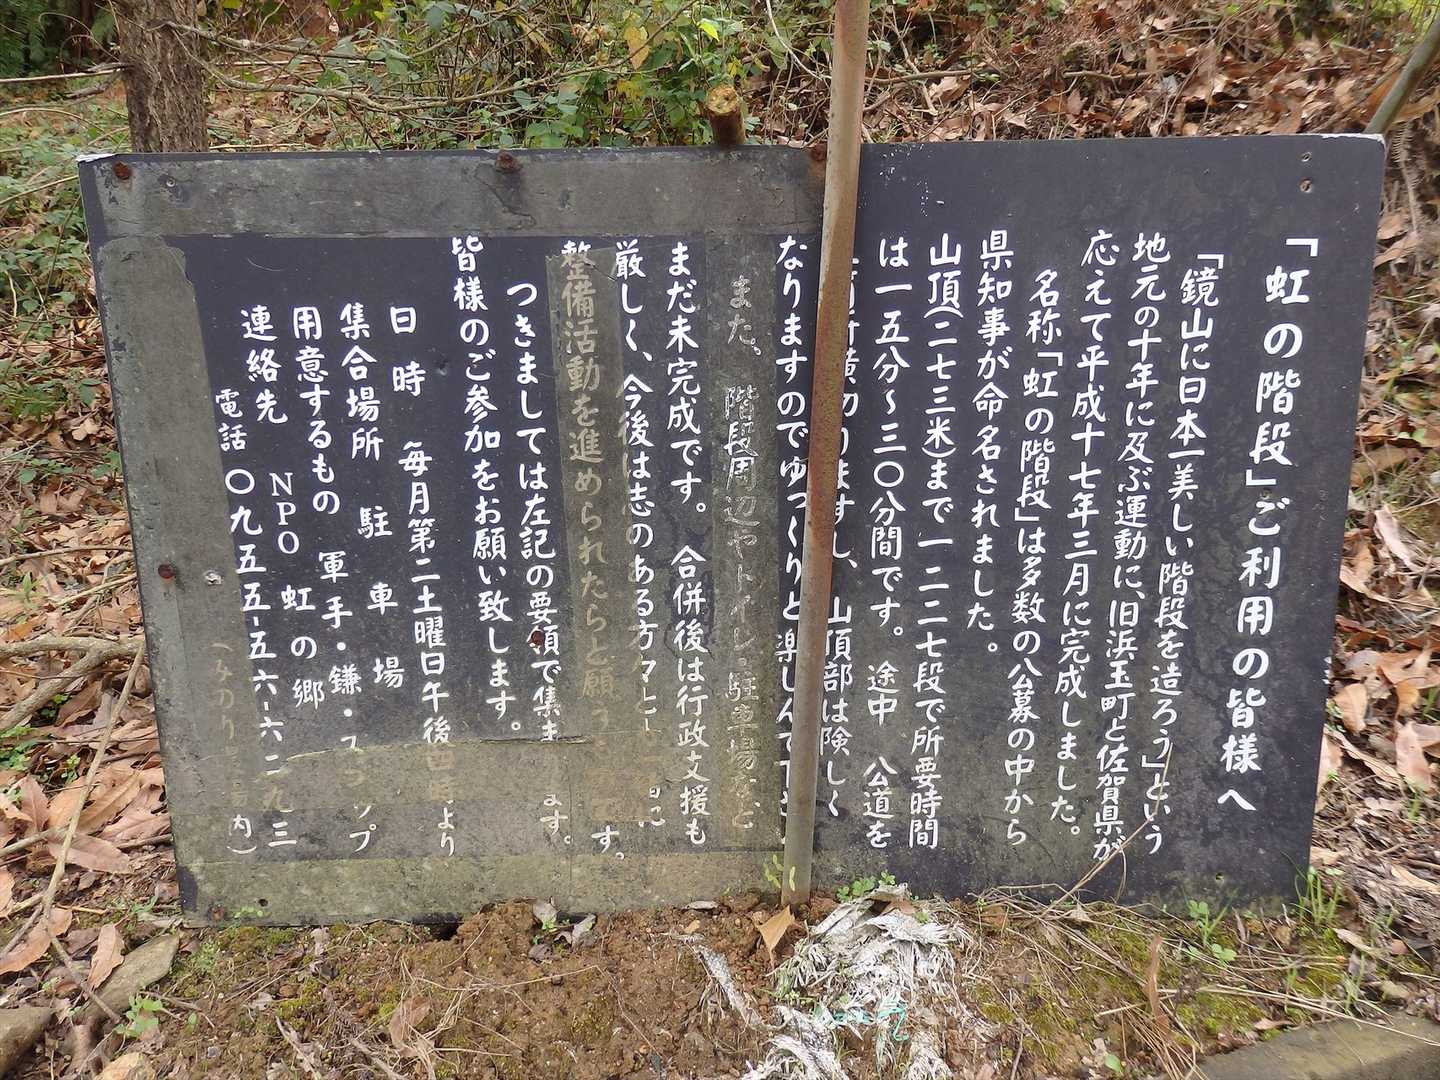 「虹の階段」ご利用の皆様へ
「鏡山に日本一美しい階段を造ろう」という
地元の十年に及ぶ運動に、旧浜玉町と佐賀県が
応えて平成十七年三月に完成しました。
名称「虹の階段」は多数の公募の中から
県知事が命名されました。
山頂(二七三米)まで一二二七段で所要時間
は一五分〜三〇分間です。途中 公道を
横切りますし、山頂部は険しく
なりますのでゆっくりと楽しんで
また。階段周辺やトイレ・駐車場など
まだ未完成です。合併後は行政支援も
厳しく、今後は志のある方々と
整備活動を進められたらと願う す。
つきましては左記の要領で集ま ます。
皆様のご参加をお願い致します。
日時 毎月第二土曜日午後四時より
集合場所 駐車場
用意するもの 軍手・鎌・スコップ
連絡先 NPO 虹の郷
電話 〇九五五-五六-六二九三
内)